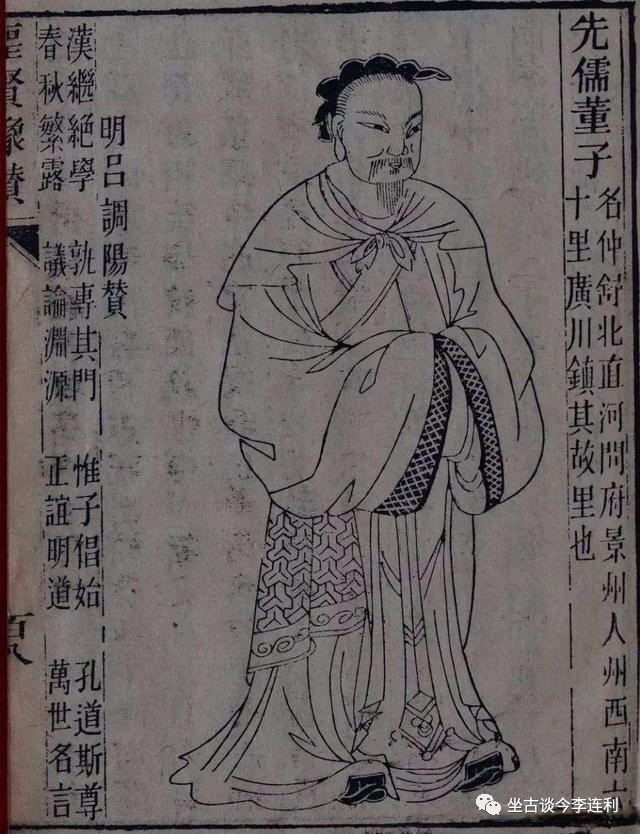 先儒董子
名仲舒北直河間府景州人州西南六
十里廣川鎮其故里也
明呂調陽賛
漢繼絕學 孰專其門 惟子倡始 孔道斯尊
春秋繁露 議論淵源 正誼明道 萬世名言
聖賢像賛
百八
坐古谈今李连利